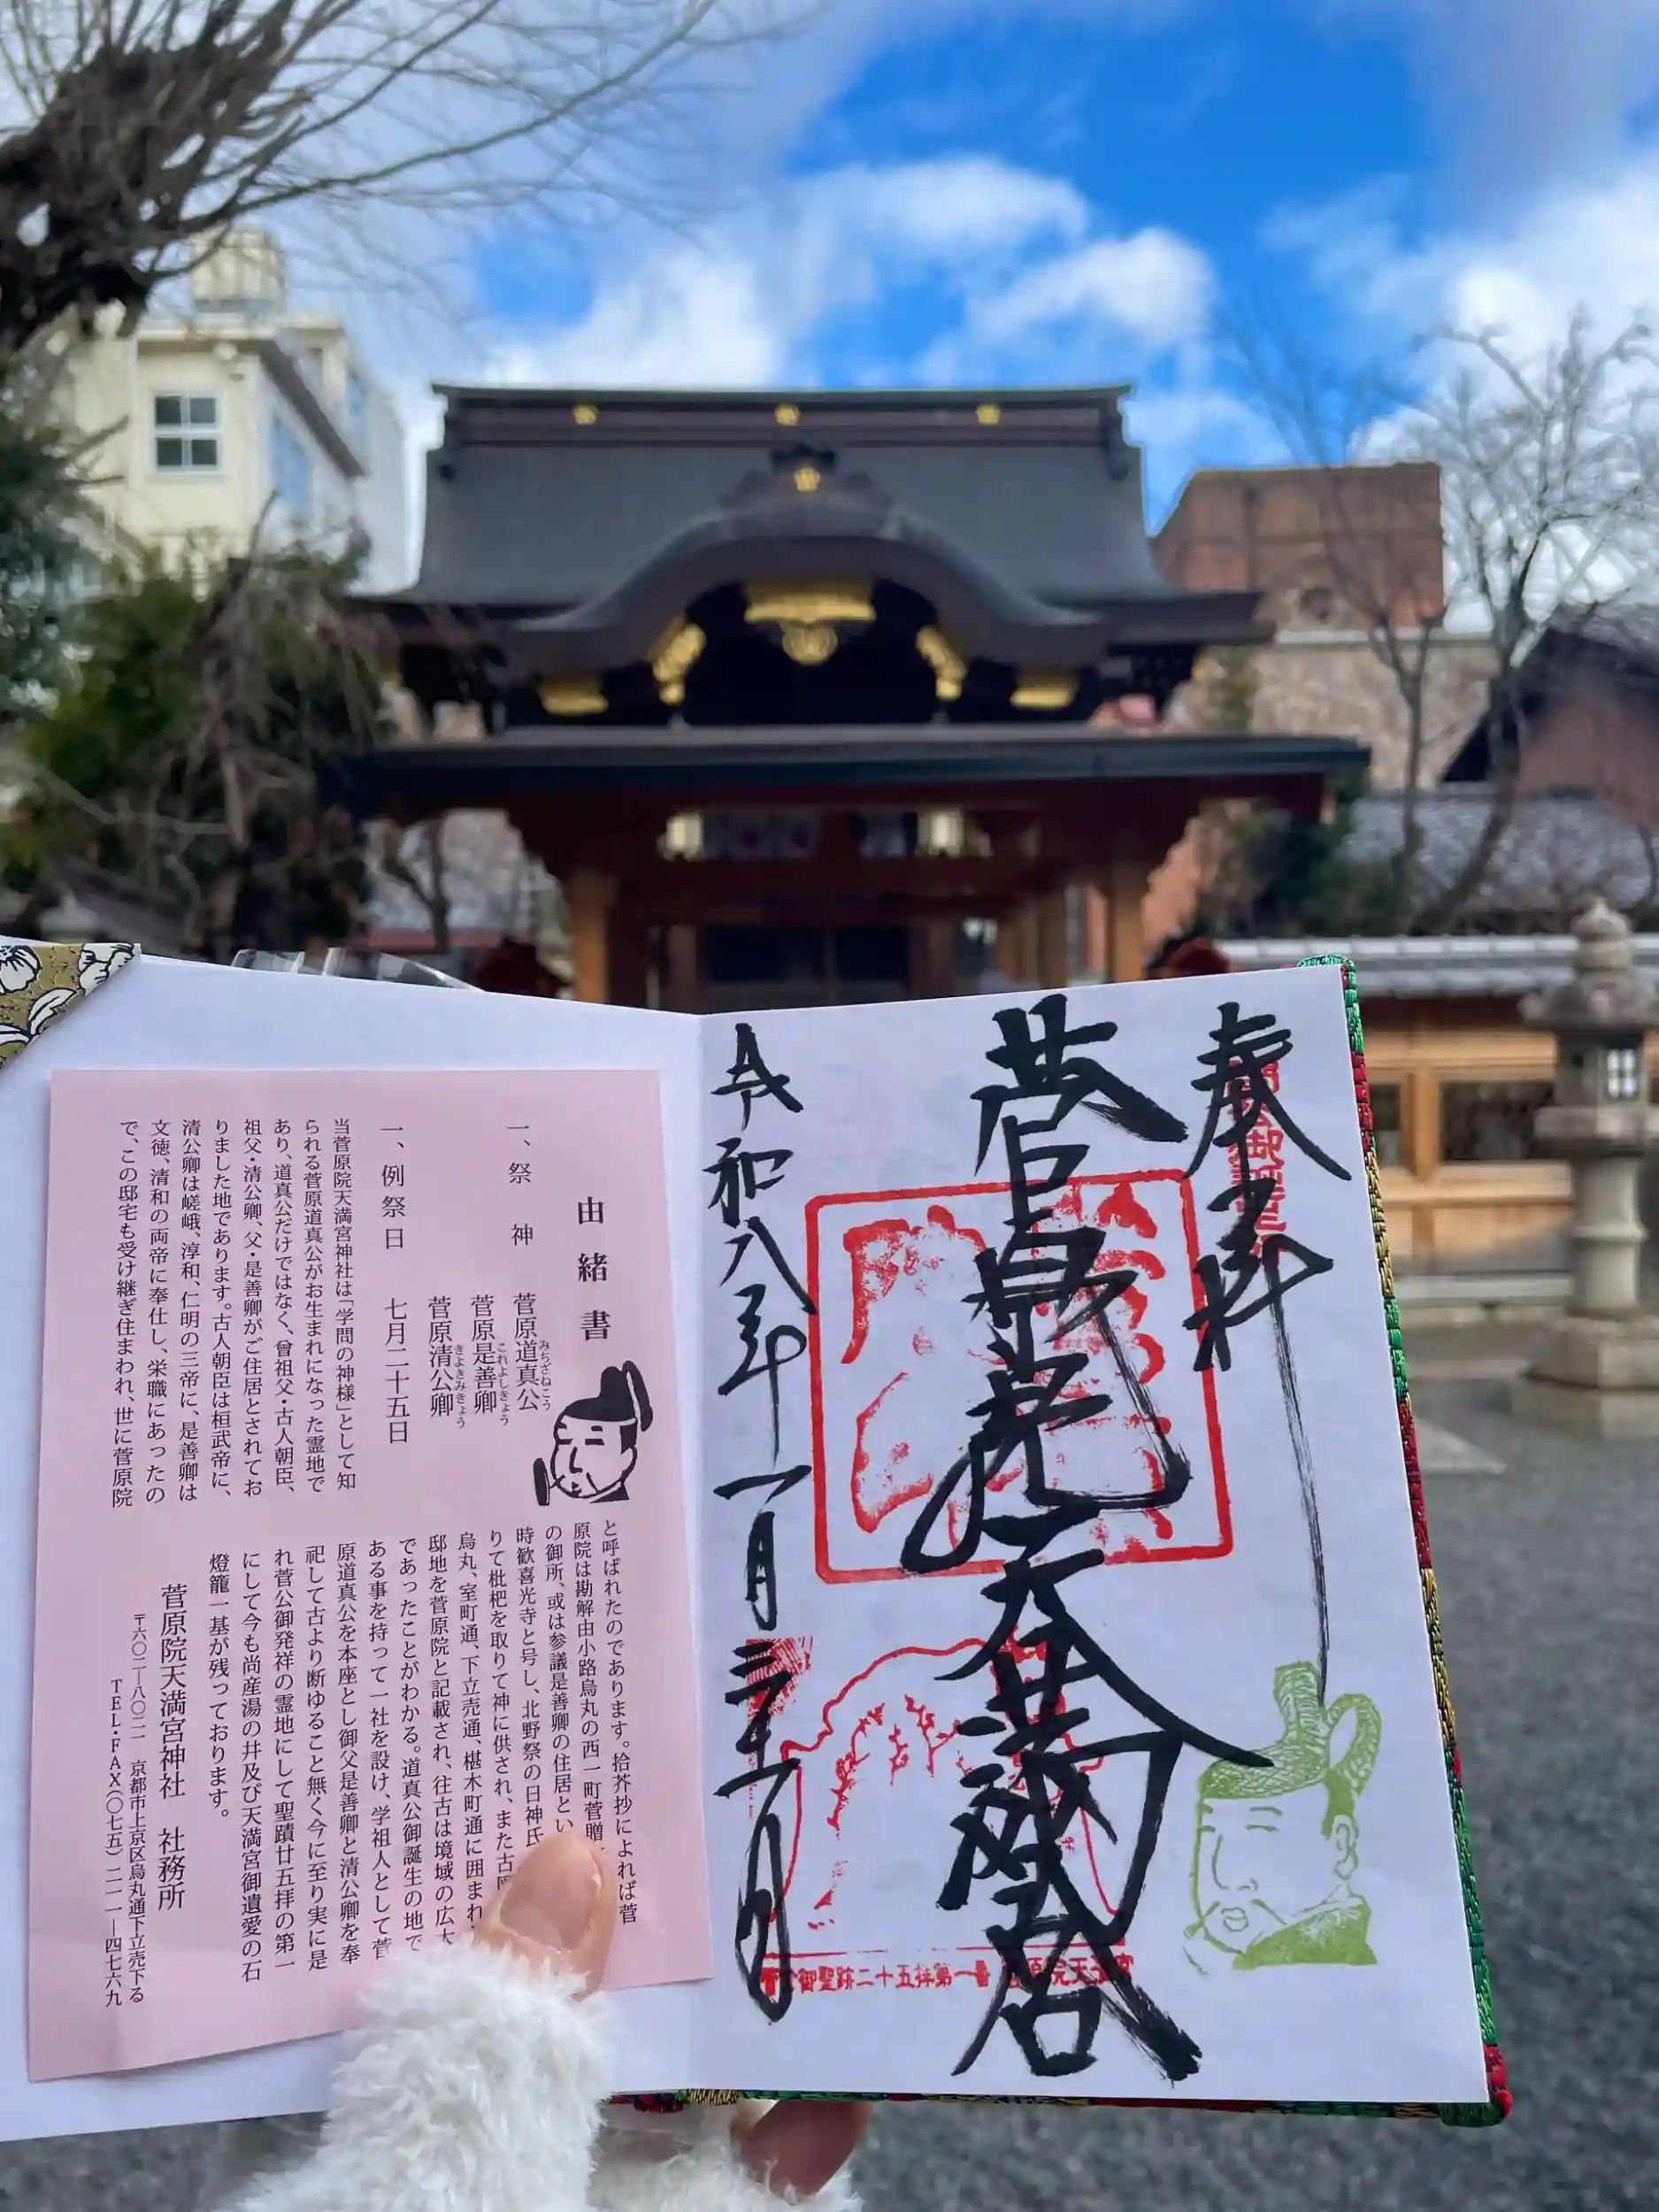 奉拝
菅原院天満宮
令和八年一月三十一日
御聖跡二十五拝第一番
由緒書
一、祭神
菅原道真公
みちざねこう
菅原是善卿
これよしきょう
菅原清公卿
きよきみきょう
一、例祭日 七月二十五日
当菅原院天満宮神社は「学問の神様」として知
られる菅原道真公がお生まれになった霊地で
あり、道真公だけではなく、曾祖父・古人朝臣、
祖父・清公卿、父・是善卿がご住居とされてお
りました地であります。古人朝臣は桓武帝に、
清公卿は嵯峨、淳和、仁明の三帝に、是善卿は
文徳、清和の両帝に奉仕し、栄職にあったの
で、この邸宅も受け継ぎ住まわれ、世に菅原院
と呼ばれたのであります。拾芥抄によれば菅
原院は勘解由小路烏丸の西一町菅贈
の御所、或は参議是善卿の住居とい
時歓喜光寺と号し、北野祭の日神氏
りて枇杷を取りて神に供され、また古
烏丸、室町通、下立売通、椹木町通に囲まれ
邸地を菅原院と記載され、往古は境域の広大
であったことがわかる。道真公御誕生の地で
ある事を持って一社を設け、学祖人として菅
原道真公を本座とし御父是善卿と清公卿を奉
祀して古より断ゆること無く今に至り実に是
れ菅公御発祥の霊地にして聖蹟廿五拝の第一
にして今も尚産湯の井及び天満宮御遺愛の石
燈籠一基が残っております。
菅原院天満宮神社 社務所
〒六〇二―八〇二一 京都市上京区烏丸通下立売下る
TEL・FAX(〇七五)二一一―四七六九